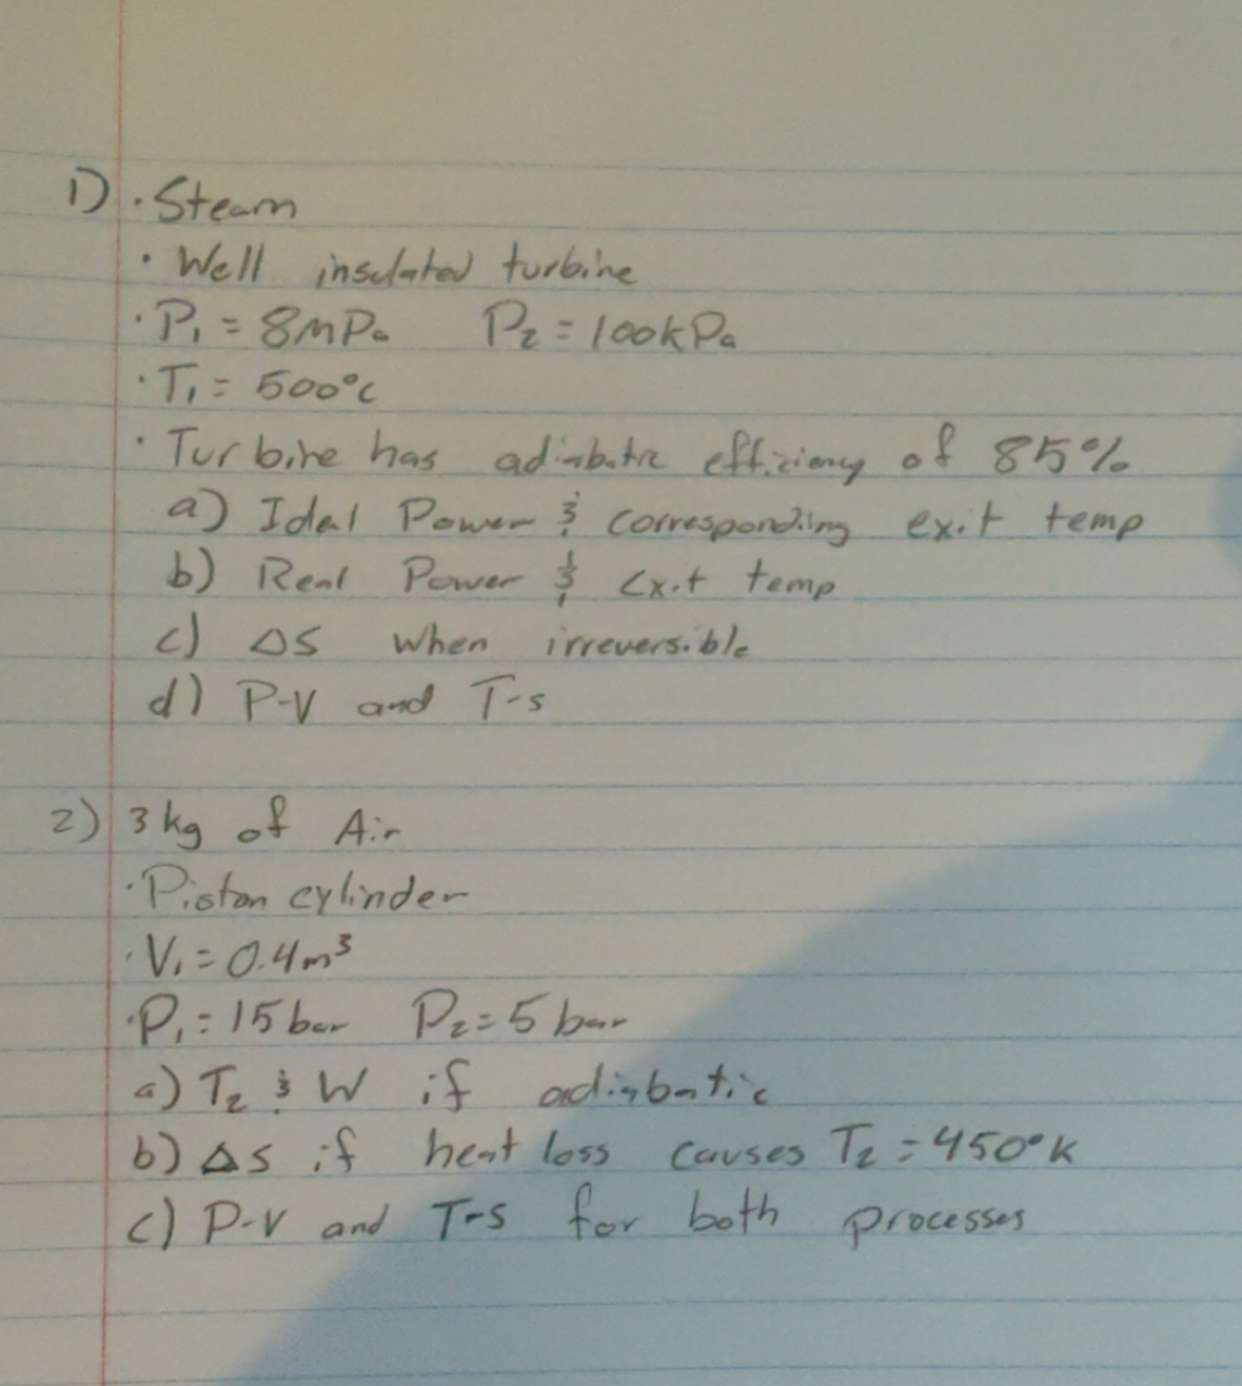 1) · Steam
· Well insulated turbine
· P₁ = 8MPa P₂ = 100kPa
· T₁ = 500°C
· Turbine has adiabatic efficiency of 85%
a) Ideal Power & corresponding exit temp
b) Real Power & exit temp
c) ΔS when irreversible
d) P-V and T-s
2) 3kg of Air
· Piston cylinder
· V₁ = 0.4m³
· P₁ = 15 bar P₂ = 5 bar
a) T₂ & W if adiabatic
b) ΔS if heat loss causes T₂ = 450°K
c) P-V and T-s for both processes